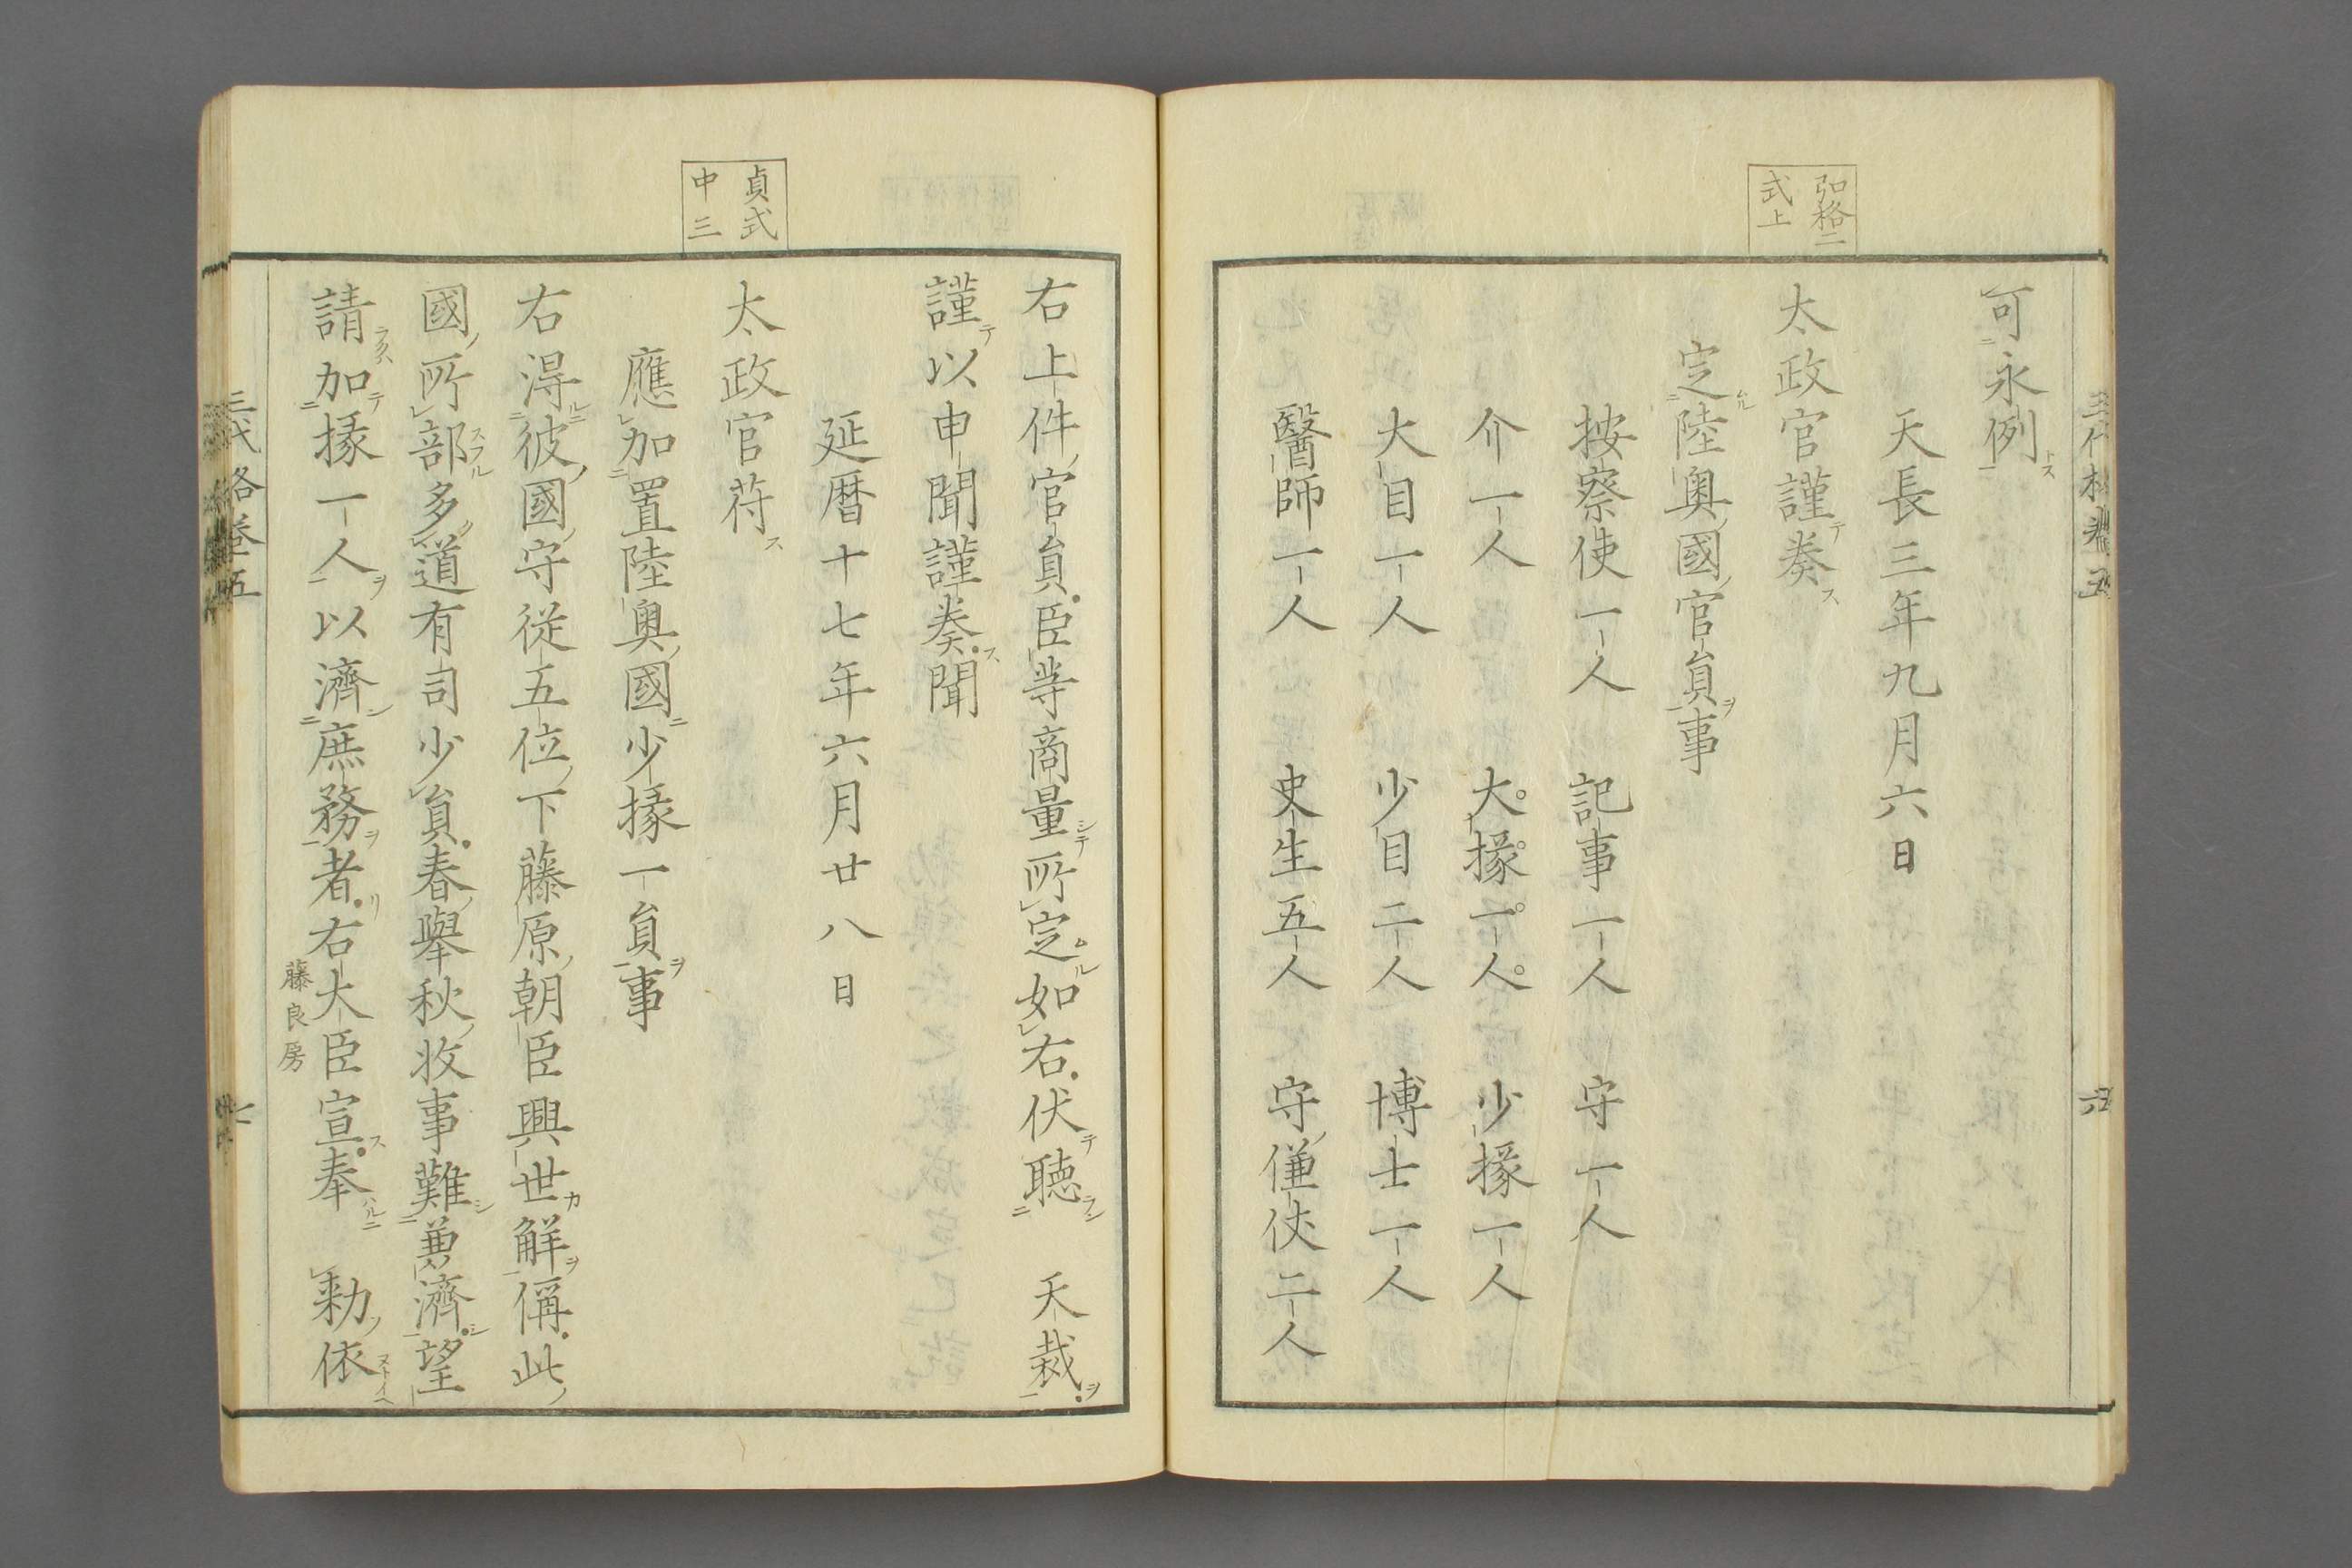 弘格二
式上
可永例
天長三年九月六日
太政官謹奏
定陸奥國官員事
按察使一人　記事一人　守一人
介一人　大掾一人　少掾一人
大目一人　少目二人　博士一人
醫師一人　史生五人　守傔仗二人
貞式
中三
右上件官員臣等商量所定如右伏聽　天裁
謹以申聞謹奏聞
延暦十七年六月廿八日
太政官苻
應加置陸奥國少掾一員事
右得彼國守從五位下藤原朝臣興世解偁此
國所部多道有司少員春擧秋收事難兼濟望
請加掾一人以濟庶務者右大臣宣奉　勅依
藤良房
三代格卷五